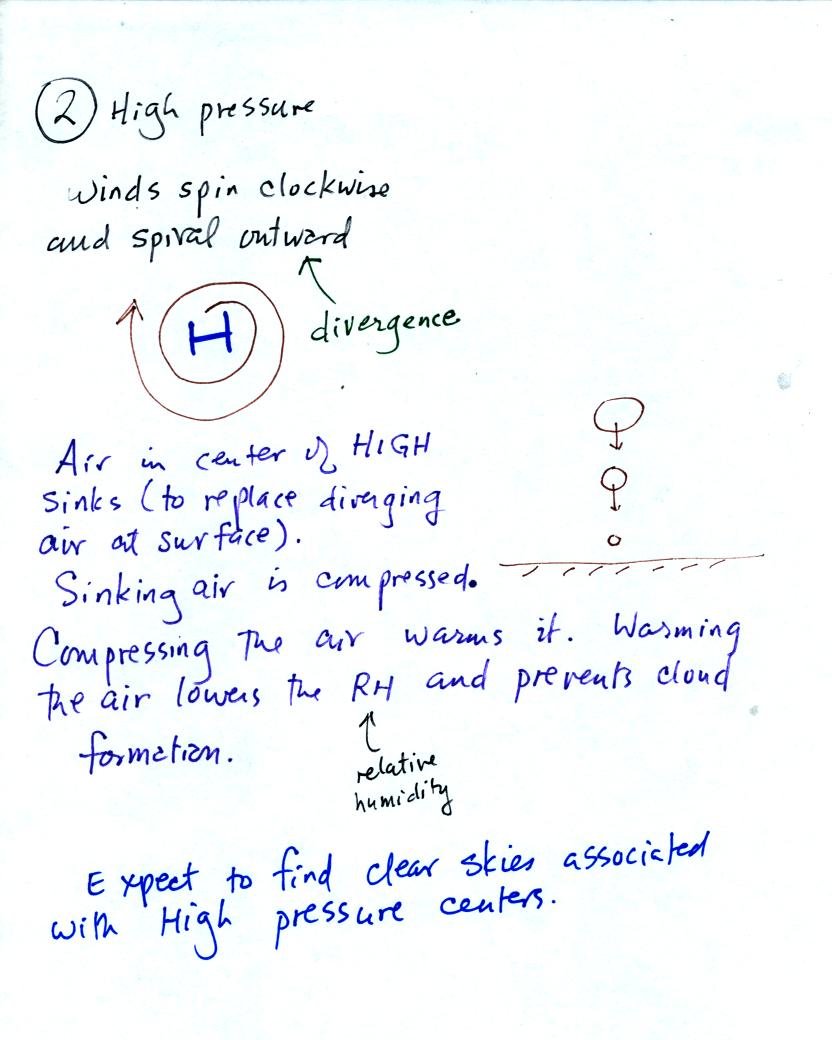 2 High pressure
winds spin clockwise
and spiral outward
divergence
H
Air in center of HIGH
sinks (to replace diverging
air at surface).
Sinking air is compressed.
Compressing the air warms it. Warming
the air lowers the RH and prevents cloud
formation.
relative
humidity
Expect to find clear skies associated
with High pressure centers.